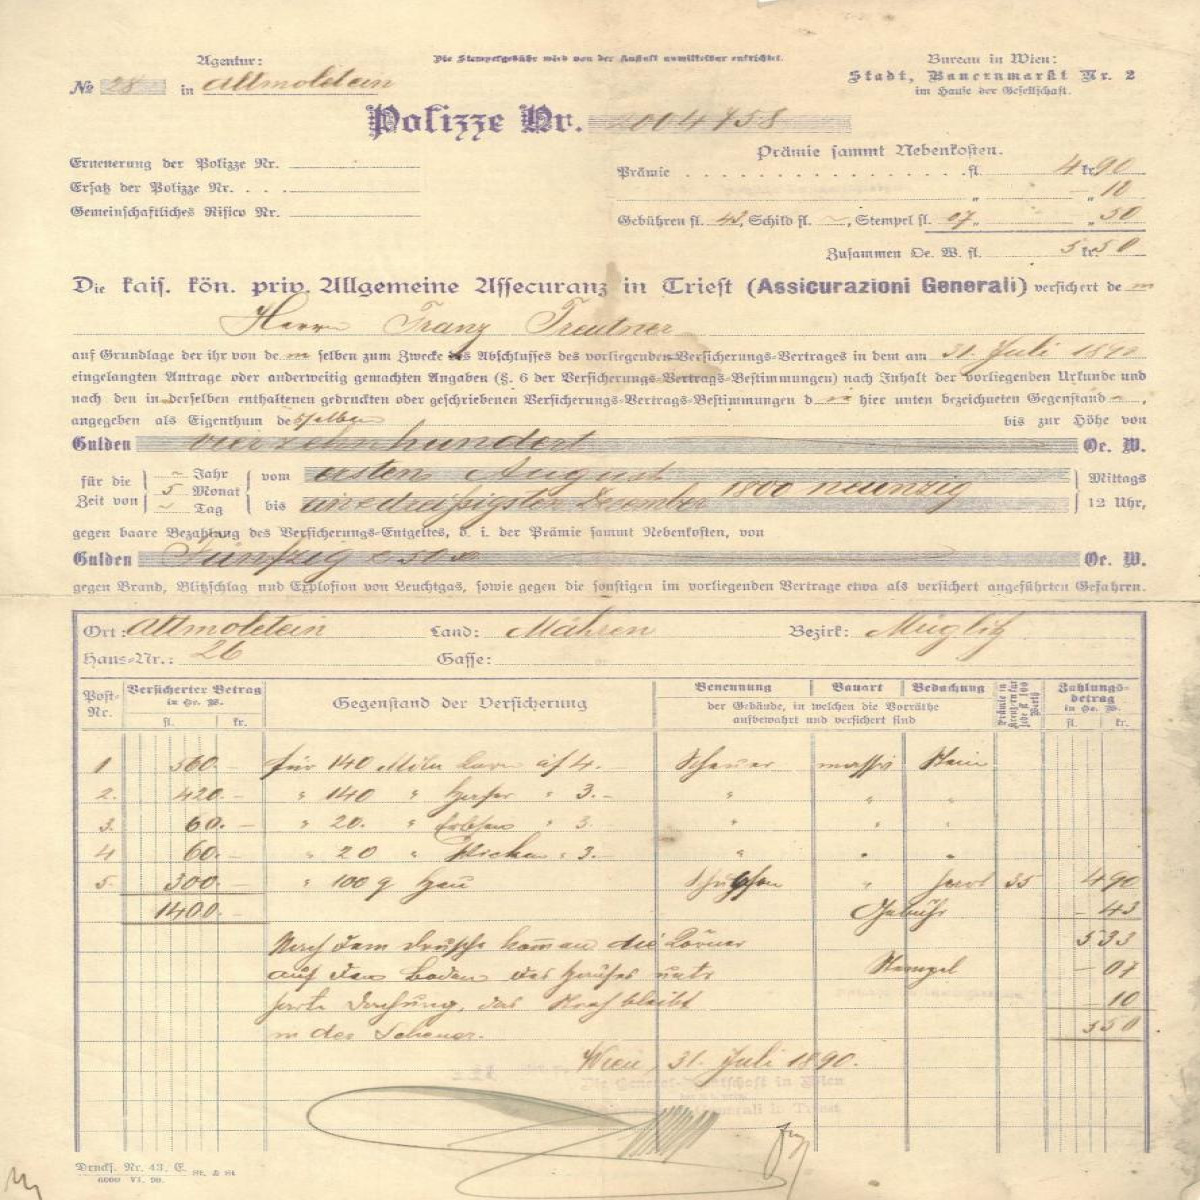 Agentur:
Die Stempelgebühr wird von der Anstalt unmittelbar entrichtet.
Bureau in Wien:
Stadt, Bauernmarkt Nr. 2
im Hause der Gesellschaft.
№ 28 in Altmoletein
Polizze Nr. 2004758
Erneuerung der Polizze Nr.
Ersatz der Polizze Nr. . . .
Gemeinschaftliches Risico Nr.
Prämie sammt Nebenkosten.
Prämie . . . . . . . . . . . . . . . . . fl. 4 kr. 90
„ — „ 10
Gebühren fl. 43, Schild fl. ~, Stempel fl. 07 „ „ 50
Zusammen Oe. W. fl. 5 kr. 50
Die kais. kön. priv. Allgemeine Assecuranz in Triest (Assicurazioni Generali) versichert dem
Herrn Franz Treutner
auf Grundlage der ihr von dem selben zum Zwecke des Abschlusses des vorliegenden Versicherungs-Vertrages in dem am 31. Juli 1890
eingelangten Antrage oder anderweitig gemachten Angaben (§. 6 der Versicherungs-Vertrags-Bestimmungen) nach Inhalt der vorliegenden Urkunde und
nach den in derselben enthaltenen gedruckten oder geschriebenen Versicherungs-Vertrags-Bestimmungen d hier unten bezeichneten Gegenstand ,
angegeben als Eigenthum desselben bis zur Höhe von
Gulden vierzehnhundert Oe. W.
für die Zeit von
~ Jahr
5 Monat
~ Tag
vom ersten August
bis einunddreißigsten December 1800 neunzig
Mittags
12 Uhr,
gegen baare Bezahlung des Versicherungs-Entgeltes, d. i. der Prämie sammt Nebenkosten, von
Gulden Fünf 50 Oe. W.
gegen Brand, Blitzschlag und Explosion von Leuchtgas, sowie gegen die sonstigen im vorliegenden Vertrage etwa als versichert angeführten Gefahren.
Ort: Altmoletein Land: Mähren Bezirk: Müglitz
Haus-Nr.: 26 Gasse:
Post-Nr. Versicherter Betrag in Oe. W. fl. kr. Gegenstand der Versicherung Benennung Bauart Bedachung
der Gebäude, in welchen die Vorräthe
aufbewahrt und versichert sind
Prämie in Kreuzern für jede fl. 100 Werth
Zahlungsbetrag in Oe. W. fl. kr.
1 560.— für 140 Mtzn Korn à f 4. Scheuer massiv Stein
2. 420.— „ 140 „ Hafer „ 3.— „ „ „
3. 60.— „ 20. „ Erbsen „ 3. „ „ „
4 60.— „ 20 „ Wicken „ 3.— „ „ „
5. 300.— „ 100 q Heu Schupfen „ hart 35 4 90
1400.— Gebühr — 43
Nach dem Drusche kommen die Körner 5 33
auf den Boden des Hauses unter Stempel — 07
harte Dachung, das Stroh bleibt — 10
in der Scheuer. 5 50
Wien, 31. Juli 1890.
Drucks. Nr. 43. E. St. & St.
6000 VI. 90.